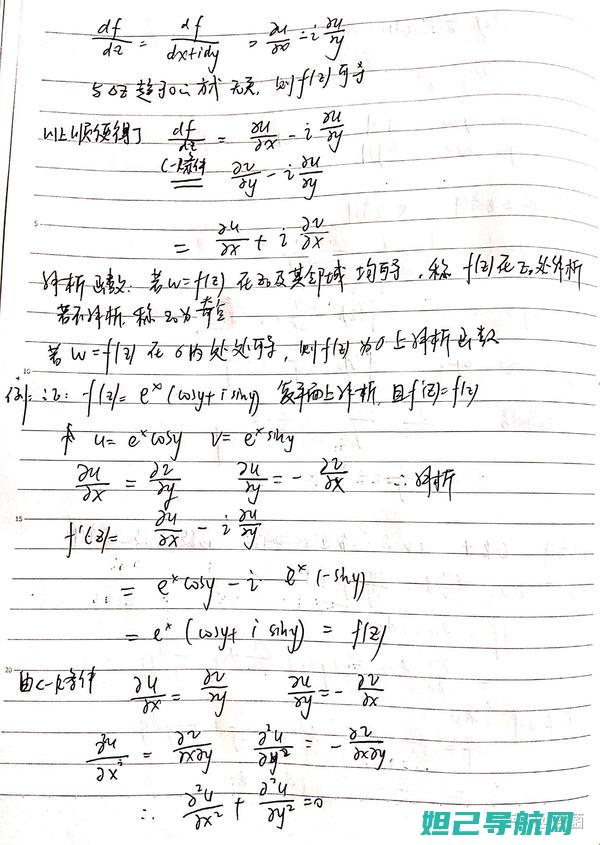 df/dz = df/dx+idy = ∂u/∂x - i ∂u/∂y
与Δz趋于0的方式无关, 则f(z)可导
以上顺便得了 df/dz = ∂u/∂x - i ∂u/∂y
C-R条件 ∂v/∂y - i ∂u/∂y
= ∂u/∂x + i ∂v/∂x
5
解析函数: 若w=f(z) 在z₀及其邻域 均可导, 称 f(z)在z₀处解析
若不解析, 称z₀为奇点
若 w=f(z) 在 σ内处处可导, 则f(z)为σ上解析函数
10
例: 证: f(z)= eˣ(cosy+isiny) 复平面上解析, 且f'(z)=f(z)
u= eˣcosy v= eˣsiny
∂u/∂x = ∂v/∂y ∂u/∂y = - ∂v/∂x ∴解析
15
f'(z)= ∂u/∂x - i ∂u/∂y
= eˣcosy - i eˣ(-siny)
= eˣ(cosy+ i siny) = f(z)
20
由C-R条件 ∂u/∂x = ∂v/∂y ∂u/∂y = - ∂v/∂x
∂²u/∂x² = ∂²v/∂x∂y ∂²u/∂y² = - ∂²v/∂x∂y
∴ ∂²u/∂x² + ∂²u/∂y² =0
妲己导航网